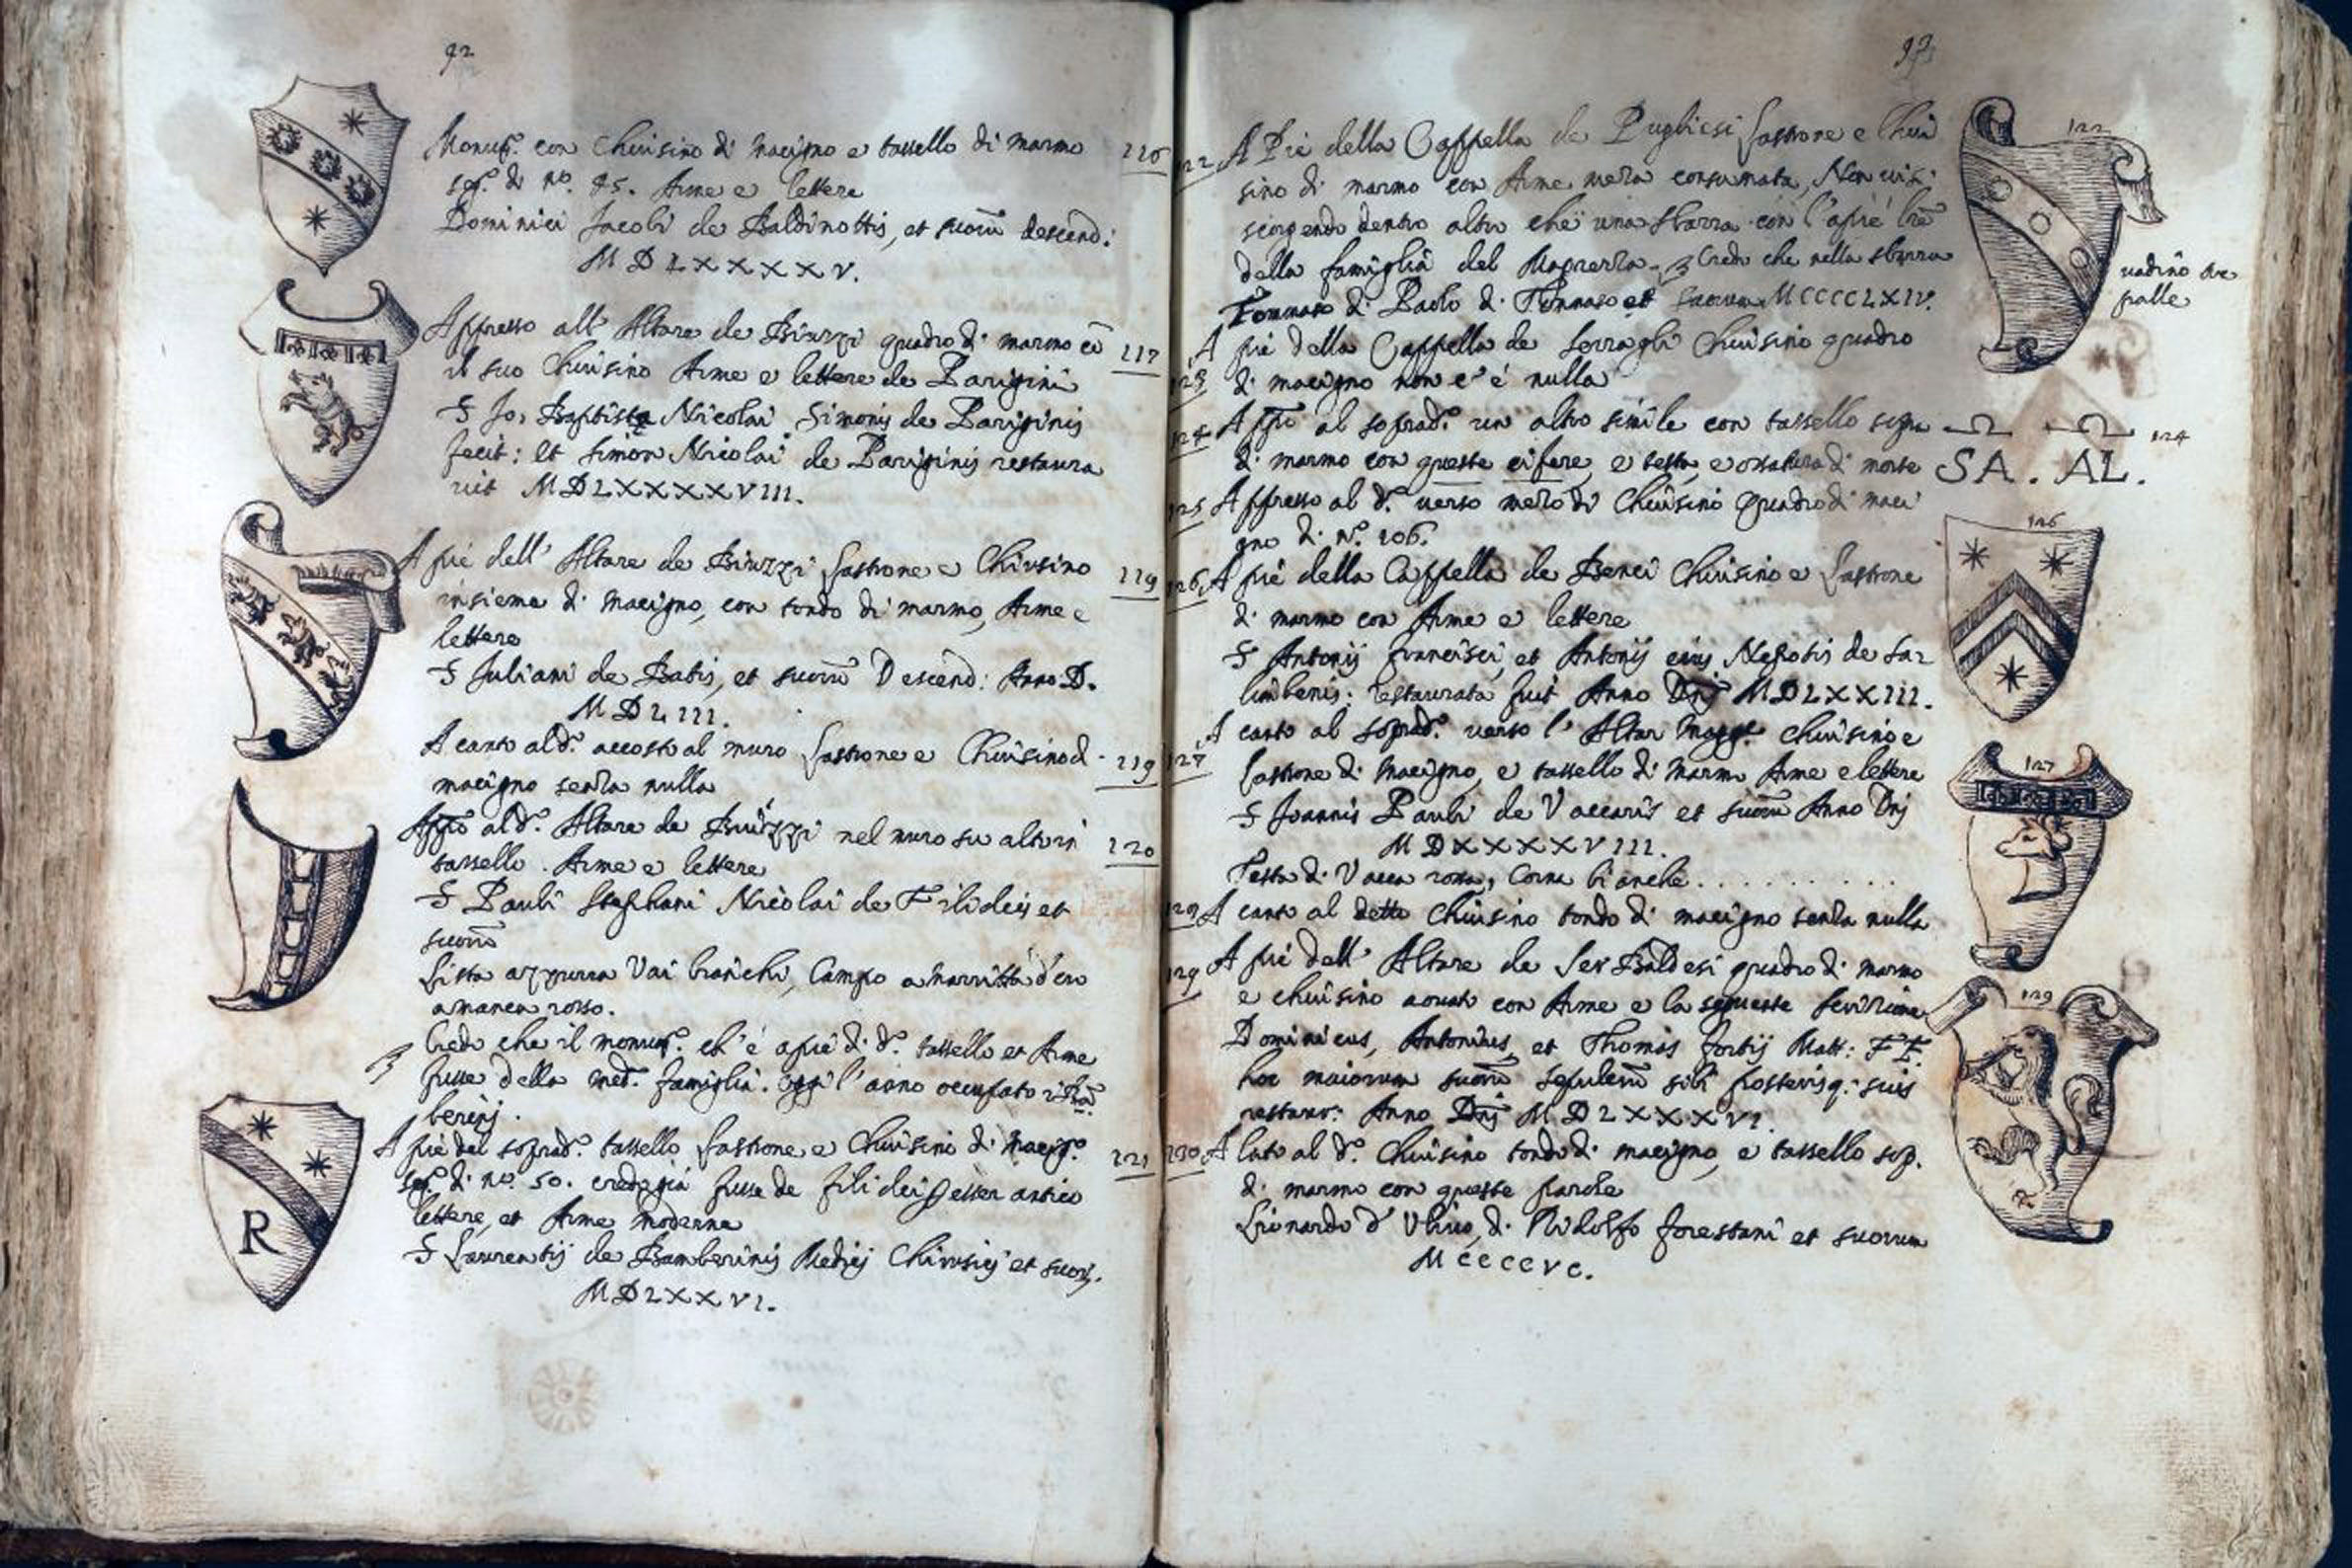 92
Monum.to con Chiusino di macigno e tassello di marmo 116
seg.to di n.o 85. Arme e lettere
Dominici Jacobi de Baldinottis, et suorū descend:
MDLXXXXV.
Appresso all' Altare de Biuzzi quadro di marmo cō 117
il suo Chiusino Arme e lettere de Parigini
S Jo: Baptista Nicolai Simonis de Pariginis
fecit: et Simon Nicolai de Pariginis restaura
vit MDLXXXXVIII.
A piè dell' Altare de Biuzzi lastrone e Chiusino 119
insieme di macigno, con tondo di marmo, Arme e
lettere
S Juliani de Batis, et suorū Descend: Anno D.
MDLIII.
A canto al d.o accosto al muro lastrone e Chiusino d 119
macigno senza nulla
App.o al d.o Altare de Biuzzi nel muro su alto in 120
tassello. Arme e lettere
S Pauli Stephani Nicolai de Filideis et
suorū
Lista azzurra Vai bianchi, Campo a marritta d'oro
a manca rosso.
Credo che il monum.to ch'è a piè di d.o tassello et Arme
fusse della med.a famiglia. oggi l'anno occupato i
berinj.
A piè del soprad.o tassello lastrone e Chiusino di macig.o 121
seg.o di n.o 50. credo già fusse de filidei esser antico
lettere, et Arme moderna
S Laurentij de Bamberinis Medici Chirusici et suor.
MDLXXVI.
R
93
122 A Piè della Cappella de Pugliesi lastrone e Chiu
sino di marmo con Arme mezza consumata, Non vi si
scorgendo dentro altro che una sbarra con l'apiè lrē
della famiglia del Mazzezza. Credo che nella sbarra
Tommaso di Paolo di Tommaso et suorum MCCCCLXIV.
122
vadino tre
palle
123 A piè della Cappella de Serragli Chiusino quadro
di macigno non c'è nulla
124 App.o al soprad.o un altro simile con tassello sopra
di marmo con queste cifere, e testa, e ossatura di morte
124
SA. AL.
125 Appresso al d.o verso mezo dì Chiusino quadro di maci
gno di N.o 106.
126 A piè della Cappella de Benci Chiusino e lastrone
di marmo con Arme e lettere
S Antonij Francisci, et Antonij eius Nepotis de Sa
limbenis: restaurata fuit Anno Dnj MDLXXIII.
126
127 A canto al soprad.o verso l'Altar Magg.e Chiusino e
lastrone di macigno, e tassello di marmo Arme e lettere
S Joannis Pauli de Vaccaris et suorū Anno Dnj
MDXXXXVIII.
Testa di Vacca rossa, Corna bianche.
127
128 A canto al detto Chiusino tondo di macigno senza nulla
129 A piè dell' Altare de Ser Baldesi quadro di marmo
e chiusino aovato con Arme e la seguente Scrizione
Dominicus, Antonius, et Thomas fortij Matt: FF.
hoc maiorum suorū sepulcrū sibi posterisq: suis
restaur: Anno Dnj MDLXXXVI.
129
130 A lato al d.o Chiusino tondo di macigno, e tassello sop.
di marmo con queste parole
Lionardo d' Ulivo, di Ridolfo forestani et suorum
MCCCCVC.